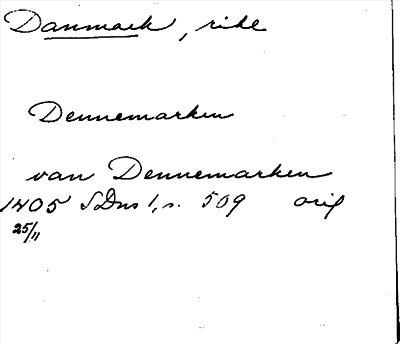 Danmark, rike
Dennemarken
van Dennemarken
1405 SDns 1, s. 509 orig
25/11